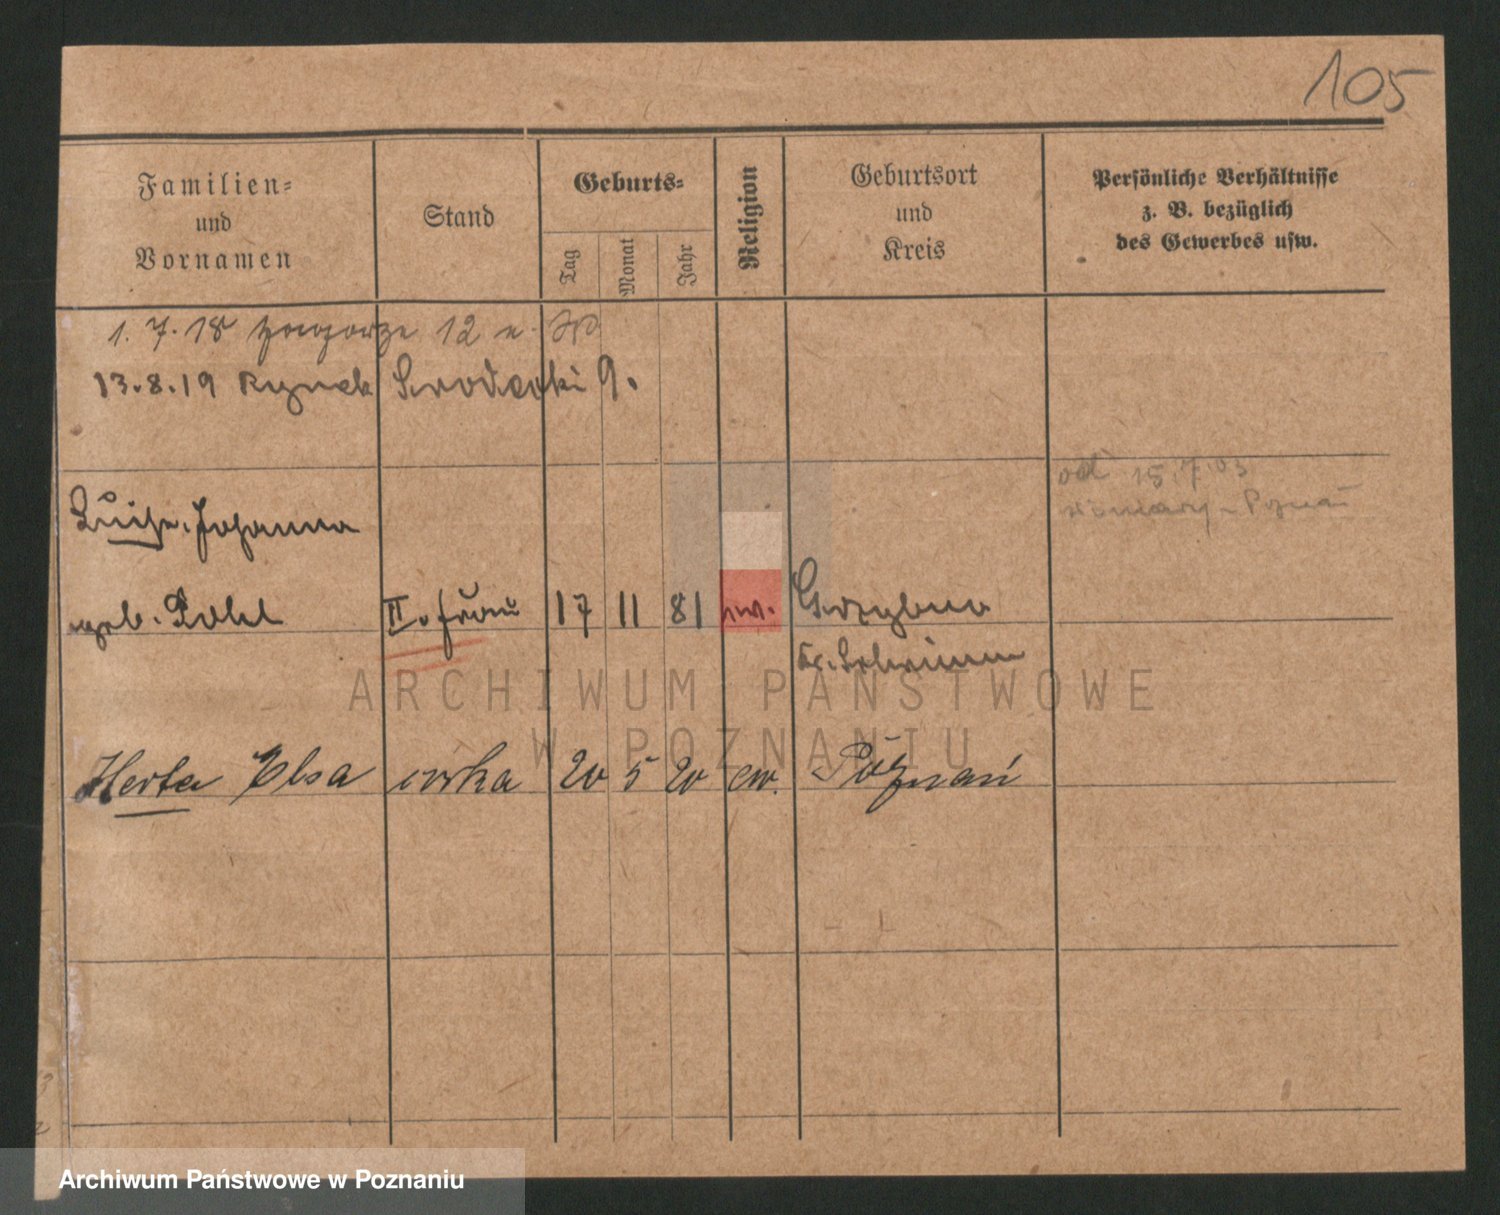 105
Familien-
und
Vornamen
Stand
Geburts-
Tag
Monat
Jahr
Religion
Geburtsort
und
Kreis
Persönliche Verhältnisse
z. B. bezüglich
des Gewerbes usw.
1. 7. 18 Zagorze 12 u.
13.8.19 Rynek Srodecki 9.
od 15.7.03
Poznań
Luise Johanna
geb. Pohl II. Frau 17 11 81 ew. Grzybno
Kr. Schrimm
Herta Elsa córka 20 5 20 ew. Poznań
ARCHIWUM PAŃSTWOWE
W POZNANIU
Archiwum Państwowe w Poznaniu